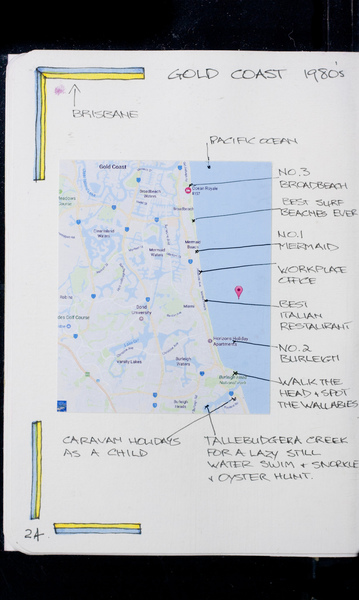 GOLD COAST 1980's
BRISBANE
PACIFIC OCEAN
Gold Coast
NO.3
BROADBEACH
Broadbeach
Waters
Broadbeach
BEST SURF
BEACHES EVER
NO.1
MERMAID
Mermaid
Beach
Mermaid
Waters
WORKPLACE
OFFICE
BEST
ITALIAN
RESTAURANT
Bond
University
Miami
NO.2
BURLEIGH
Varsity Lakes
Burleigh
Waters
WALK THE
HEAD & SPOT
THE WALLABIES
Burleigh
Heads
CARAVAN HOLIDAYS
AS A CHILD
TALLEBUDGERA CREEK
FOR A LAZY STILL
WATER SWIM & SNORKLE
& OYSTER HUNT.
24